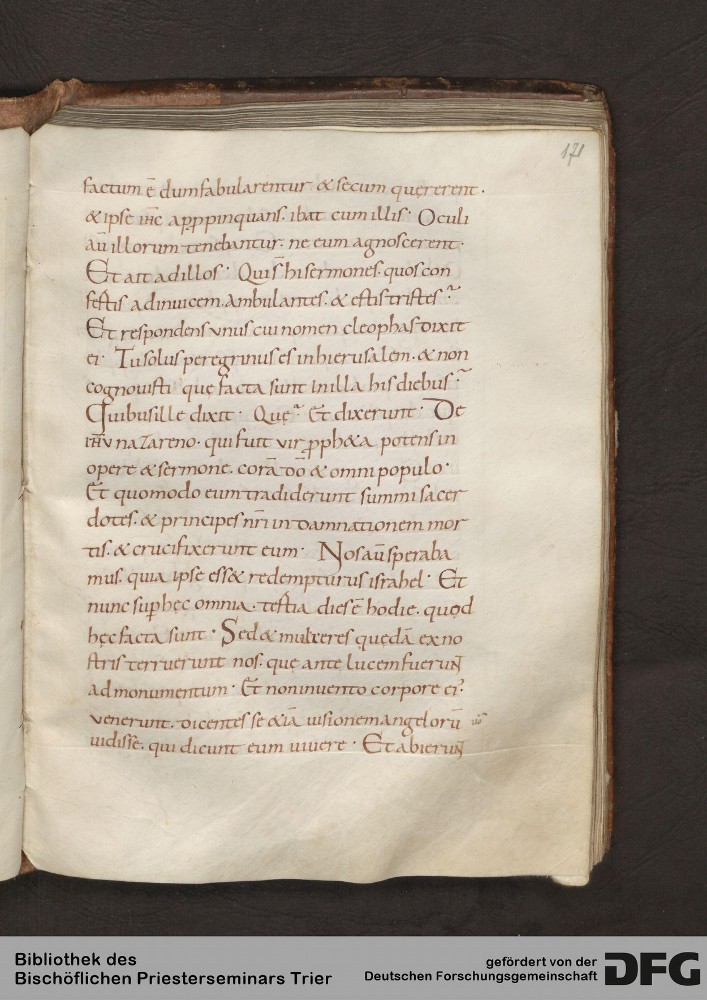 171
factum ē dum fabularentur & secum quęrerent.
& ipse ihc appropinquans. ibat cum illis. Oculi
aū illorum tenebantur. ne eum agnoscerent.
Et ait ad illos. Qui s̄ hi sermones. quos con
fertis ad inuicem. ambulantes. & estis tristes?
Et respondens unus cui nomen cleophas dixit
ei. Tu solus peregrinus es in hierusalem. & non
cognouisti quę facta sunt in illa his diebus?
Quibus ille dixit. Quę? Et dixerunt. De
ihū nazareno. qui fuit vir ꝓph&a potens in
opere & sermone. corā dō & omni populo.
Et quomodo eum tradiderunt summi sacer
dotes. & principes nr̄i in damnationem mor
tis. & crucifixerunt eum. Nos aū speraba
mus. quia ipse ess& redempturus israhel. Et
nunc sup hęc omnia. tertia dies ē hodie. quod
hęc facta sunt. Sed & mulieres quędā ex no
stris terruerunt nos. quę ante lucem fuerunt
ad monumentum. Et non inuento corpore ei'.
venerunt. dicentes se &iā uisionem angelorū
uidisse. qui dicunt eum uiuere. Et abierunt
Bibliothek des
Bischöflichen Priesterseminars Trier
gefördert von der
Deutschen Forschungsgemeinschaft
DFG